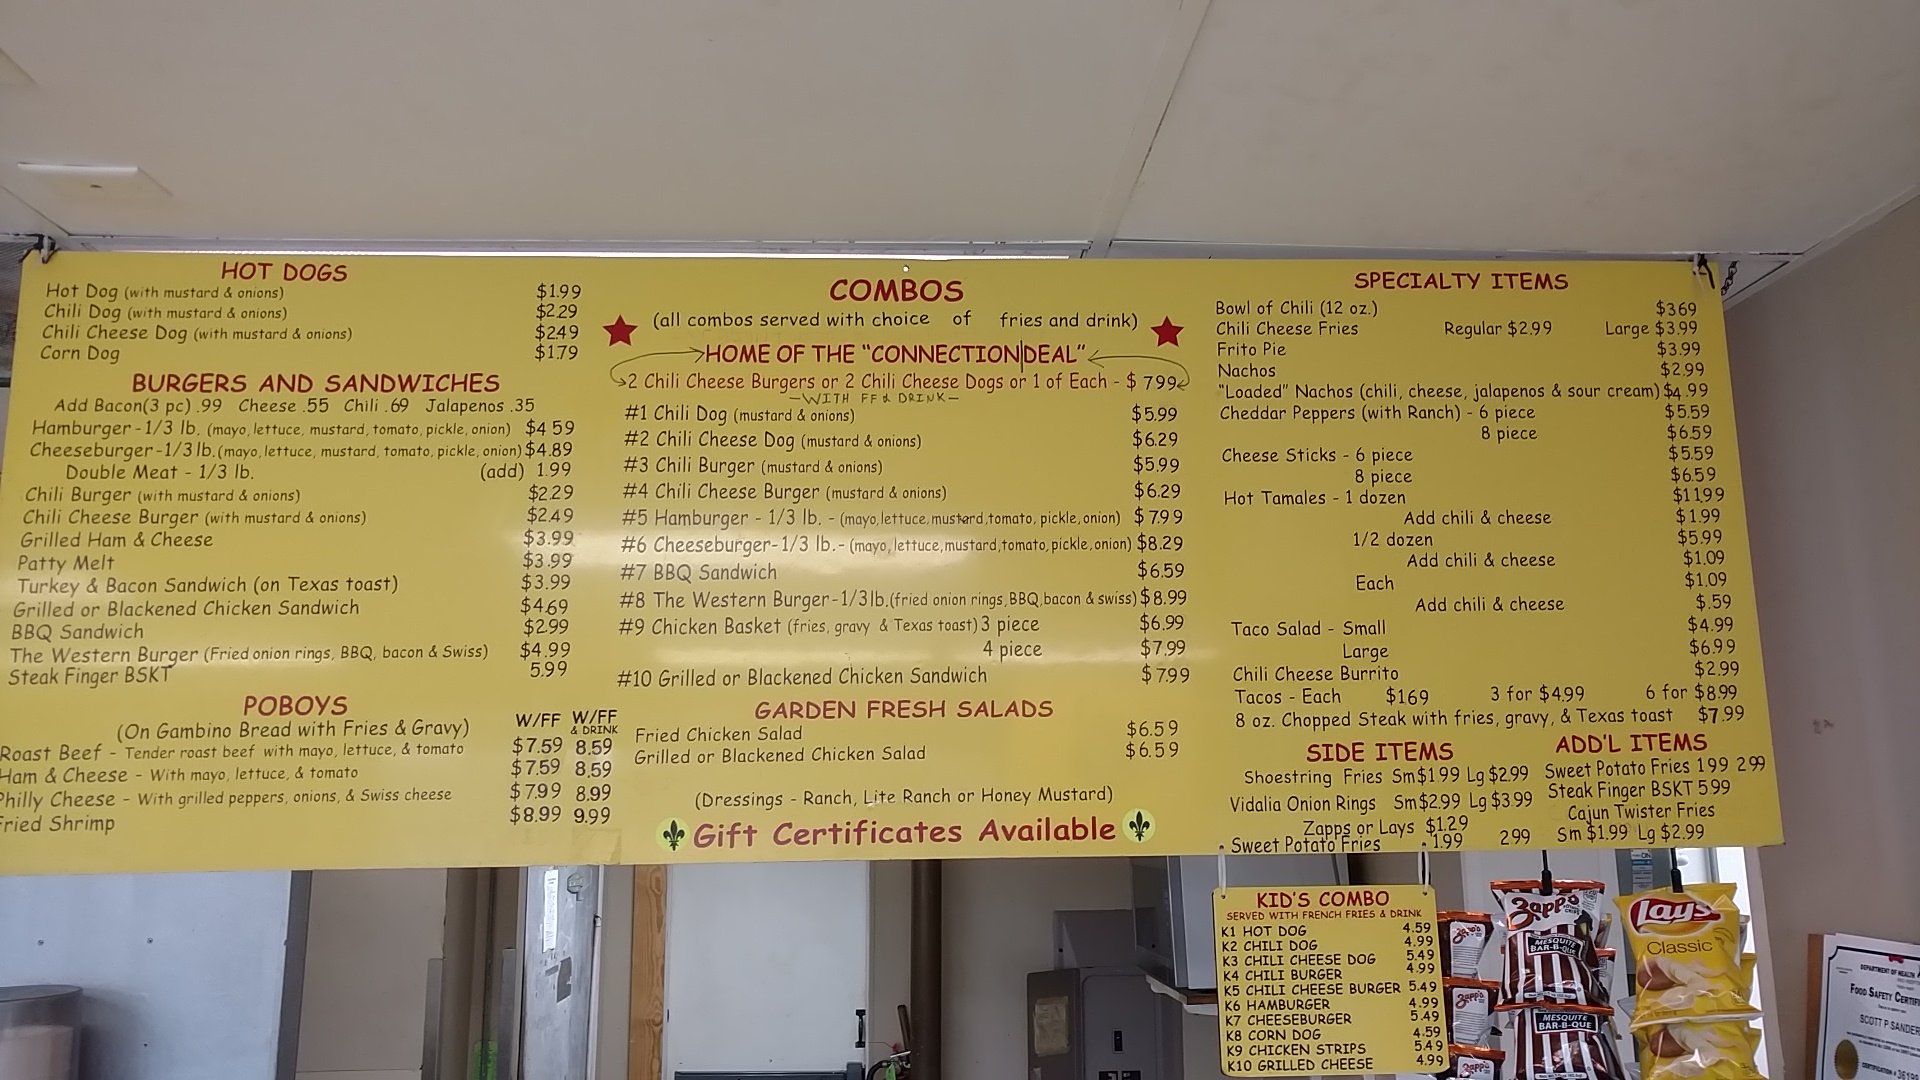 HOT DOGS
Hot Dog (with mustard & onions) $1.99
Chili Dog (with mustard & onions) $2.29
Chili Cheese Dog (with mustard & onions) $2.49
Corn Dog $1.79
BURGERS AND SANDWICHES
Add Bacon(3 pc) .99 Cheese .55 Chili .69 Jalapenos .35
Hamburger - 1/3 lb. (mayo, lettuce, mustard, tomato, pickle, onion) $4 59
Cheeseburger - 1/3 lb. (mayo, lettuce, mustard, tomato, pickle, onion) $4.89
Double Meat - 1/3 lb. (add) 1.99
Chili Burger (with mustard & onions) $2.29
Chili Cheese Burger (with mustard & onions) $2.49
Grilled Ham & Cheese $3.99
Patty Melt $3.99
Turkey & Bacon Sandwich (on Texas toast) $3.99
Grilled or Blackened Chicken Sandwich $4.69
BBQ Sandwich $2.99
The Western Burger (Fried onion rings, BBQ, bacon & Swiss) $4.99
Steak Finger BSKT 5.99
POBOYS
(On Gambino Bread with Fries & Gravy) W/FF W/FF & DRINK
Roast Beef - Tender roast beef with mayo, lettuce, & tomato $7.59 8.59
Ham & Cheese - With mayo, lettuce, & tomato $7.59 8.59
Philly Cheese - With grilled peppers, onions, & Swiss cheese $7.99 8.99
Fried Shrimp $8.99 9.99
COMBOS
(all combos served with choice of fries and drink)
HOME OF THE "CONNECTION DEAL"
2 Chili Cheese Burgers or 2 Chili Cheese Dogs or 1 of Each - $ 799
- WITH FF & DRINK -
#1 Chili Dog (mustard & onions) $5.99
#2 Chili Cheese Dog (mustard & onions) $6.29
#3 Chili Burger (mustard & onions) $5.99
#4 Chili Cheese Burger (mustard & onions) $6.29
#5 Hamburger - 1/3 lb. - (mayo, lettuce, mustard, tomato, pickle, onion) $7.99
#6 Cheeseburger - 1/3 lb. - (mayo, lettuce, mustard, tomato, pickle, onion) $8.29
#7 BBQ Sandwich $6.59
#8 The Western Burger - 1/3 lb. (fried onion rings, BBQ, bacon & swiss) $8.99
#9 Chicken Basket (fries, gravy & Texas toast) 3 piece $6.99
4 piece $7.99
#10 Grilled or Blackened Chicken Sandwich $7.99
GARDEN FRESH SALADS
Fried Chicken Salad $6.59
Grilled or Blackened Chicken Salad $6.59
(Dressings - Ranch, Lite Ranch or Honey Mustard)
Gift Certificates Available
SPECIALTY ITEMS
Bowl of Chili (12 oz.) $369
Chili Cheese Fries Regular $2.99 Large $3.99
Frito Pie $3.99
Nachos $2.99
"Loaded" Nachos (chili, cheese, jalapenos & sour cream) $4.99
Cheddar Peppers (with Ranch) - 6 piece $5.59
8 piece $6.59
Cheese Sticks - 6 piece $5.59
8 piece $6.59
Hot Tamales - 1 dozen $11.99
Add chili & cheese $1.99
1/2 dozen $5.99
Add chili & cheese $1.09
Each $1.09
Add chili & cheese $.59
Taco Salad - Small $4.99
Large $6.99
Chili Cheese Burrito $2.99
Tacos - Each $169 3 for $4.99 6 for $8.99
8 oz. Chopped Steak with fries, gravy, & Texas toast $7.99
SIDE ITEMS
Shoestring Fries Sm $1.99 Lg $2.99
Vidalia Onion Rings Sm $2.99 Lg $3.99
Zapps or Lays $1.29
Sweet Potato Fries 1.99 2.99
ADD'L ITEMS
Sweet Potato Fries 199 299
Steak Finger BSKT 5 99
Cajun Twister Fries
Sm $1.99 Lg $2.99
KID'S COMBO
SERVED WITH FRENCH FRIES & DRINK
K1 HOT DOG 4.59
K2 CHILI DOG 4.99
K3 CHILI CHEESE DOG 5.49
K4 CHILI BURGER 4.99
K5 CHILI CHEESE BURGER 5.49
K6 HAMBURGER 4.99
K7 CHEESEBURGER 5.49
K8 CORN DOG 4.59
K9 CHICKEN STRIPS 5.49
K10 GRILLED CHEESE 4.99
Zapp's
MESQUITE
BAR-B-QUE
Zapp's
Zapp's
MESQUITE
BAR-B-QUE
Zapp's
Lay's
Classic
DEPARTMENT OF HEALTH
FOOD SAFETY
SCOTT P